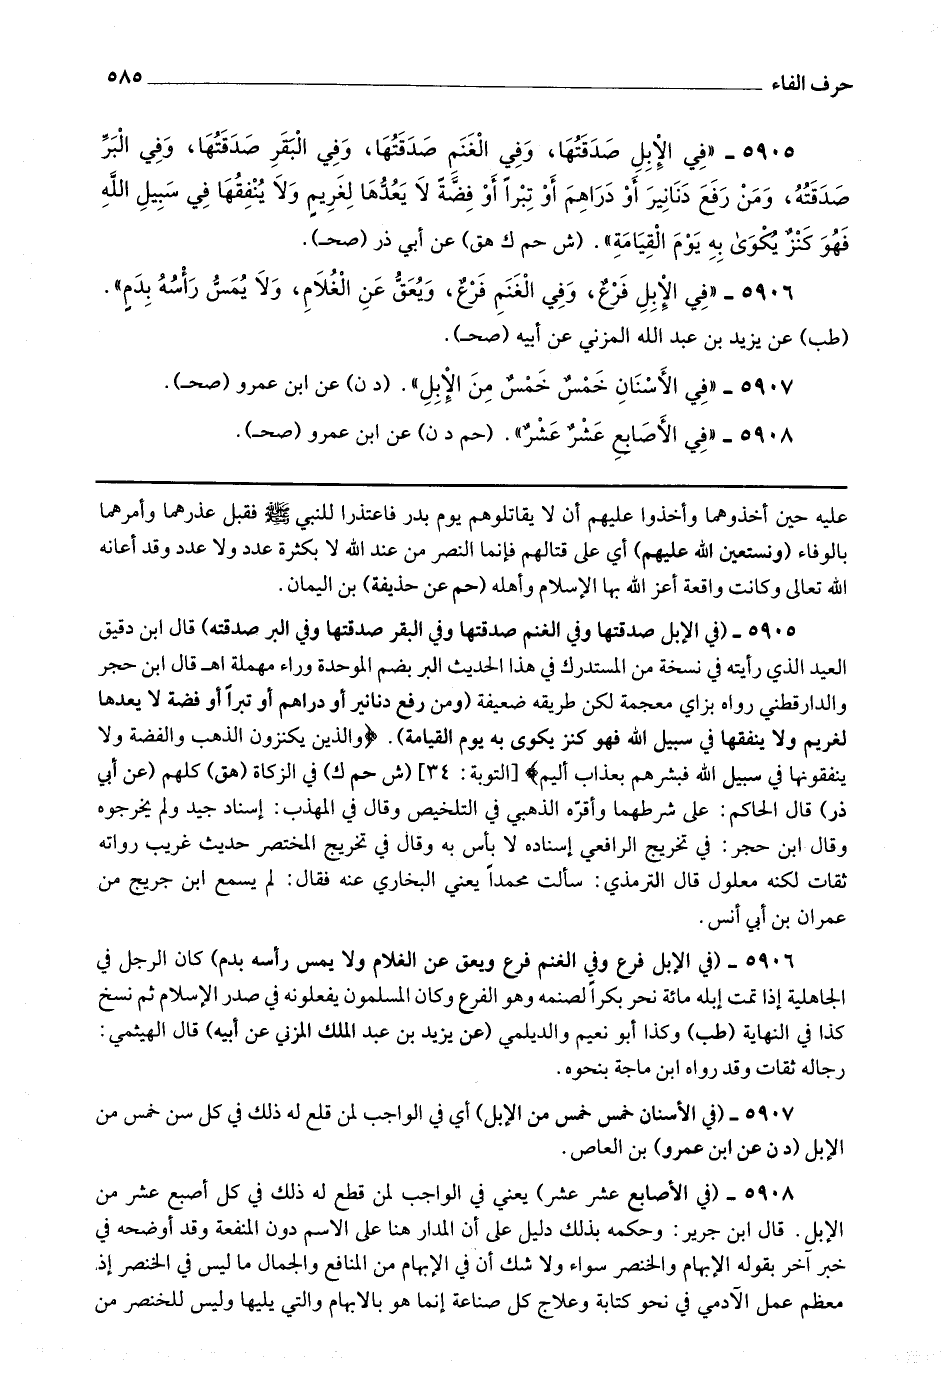 حرف الفاء ٥٨٥
٥٩٠٥ ـ «فِي الْإِبِلِ صَدَقَتُهَا، وَفِي الْغَنَمِ صَدَقَتُهَا، وَفِي الْبَقَرِ صَدَقَتُهَا، وَفِي الْبَرِّ
صَدَقَتُهُ، وَمَنْ رَفَعَ دَنَانِيرَ أَوْ دَرَاهِمَ أَوْ تِبْراً أَوْ فِضَّةً لَا يَعُدُّهَا لِغَرِيمٍ وَلَا يُنْفِقُهَا فِي سَبِيلِ اللَّهِ
فَهُوَ كَنْزٌ يُكْوَىٰ بِهِ يَوْمَ الْقِيَامَةِ». (ش حم ك هق) عن أبي ذر (صحـ).
٥٩٠٦ ـ «فِي الْإِبِلِ فَرْعٌ، وَفِي الْغَنَمِ فَرْعٌ، وَيُعَقُّ عَنِ الْغُلَامِ، وَلَا يُمَسُّ رَأْسُهُ بِدَمٍ».
(طب) عن يزيد بن عبد الله المزني عن أبيه (صحـ).
٥٩٠٧ ـ «فِي الْأَسْنَانِ خَمْسٌ خَمْسٌ مِنَ الْإِبِلِ». (د ن) عن ابن عمرو (صحـ).
٥٩٠٨ ـ «فِي الْأَصَابِعِ عَشْرٌ عَشْرٌ». (حم د ن) عن ابن عمرو (صحـ).
عليه حين أخذوهما وأخذوا عليهم أن لا يقاتلوهم يوم بدر فاعتذرا للنبي ﷺ فقبل عذرهما وأمرهما
بالوفاء (ونستعين الله عليهم) أي على قتالهم فإنما النصر من عند الله لا بكثرة عدد ولا عدد وقد أعانه
الله تعالى وكانت واقعة أعز الله بها الإسلام وأهله (حم عن حذيفة) بن اليمان.
٥٩٠٥ ـ (في الإبل صدقتها وفي الغنم صدقتها وفي البقر صدقتها وفي البر صدقته) قال ابن دقيق
العيد الذي رأيته في نسخة من المستدرك في هذا الحديث البر بضم الموحدة وراء مهملة اهـ قال ابن حجر
والدارقطني رواه بزاي معجمة لكن طريقه ضعيفة (ومن رفع دنانير أو دراهم أو تبراً أو فضة لا يعدها
لغريم ولا ينفقها في سبيل الله فهو كنز يكوى به يوم القيامة). ﴿والذين يكنزون الذهب والفضة ولا
ينفقونها في سبيل الله فبشرهم بعذاب أليم﴾ [التوبة: ٣٤] (ش حم ك) في الزكاة (هق) كلهم (عن أبي
ذر) قال الحاكم: على شرطهما وأقرّه الذهبي في التلخيص وقال في المهذب: إسناد جيد ولم يخرجوه
وقال ابن حجر: في تخريج الرافعي إسناده لا بأس به وقال في تخريج المختصر حديث غريب رواته
ثقات لكنه معلول قال الترمذي: سألت محمداً يعني البخاري عنه فقال: لم يسمع ابن جريج من
عمران بن أبي أنس.
٥٩٠٦ ـ (في الإبل فرع وفي الغنم فرع ويعق عن الغلام ولا يمس رأسه بدم) كان الرجل في
الجاهلية إذا تمت إبله مائة نحر بكراً لصنمه وهو الفرع وكان المسلمون يفعلونه في صدر الإسلام ثم نسخ
كذا في النهاية (طب) وكذا أبو نعيم والديلمي (عن يزيد بن عبد الملك المزني عن أبيه) قال الهيثمي:
رجاله ثقات وقد رواه ابن ماجة بنحوه.
٥٩٠٧ ـ (في الأسنان خمس خمس من الإبل) أي في الواجب لمن قلع له ذلك في كل سن خمس من
الإبل (د ن عن ابن عمرو) بن العاص.
٥٩٠٨ ـ (في الأصابع عشر عشر) يعني في الواجب لمن قطع له ذلك في كل أصبع عشر من
الإبل. قال ابن جرير: وحكمه بذلك دليل على أن المدار هنا على الاسم دون المنفعة وقد أوضحه في
خبر آخر بقوله الإبهام والخنصر سواء ولا شك أن في الإبهام من المنافع والجمال ما ليس في الخنصر إذ
معظم عمل الآدمي في نحو كتابة وعلاج كل صناعة إنما هو بالابهام والتي يليها وليس للخنصر من